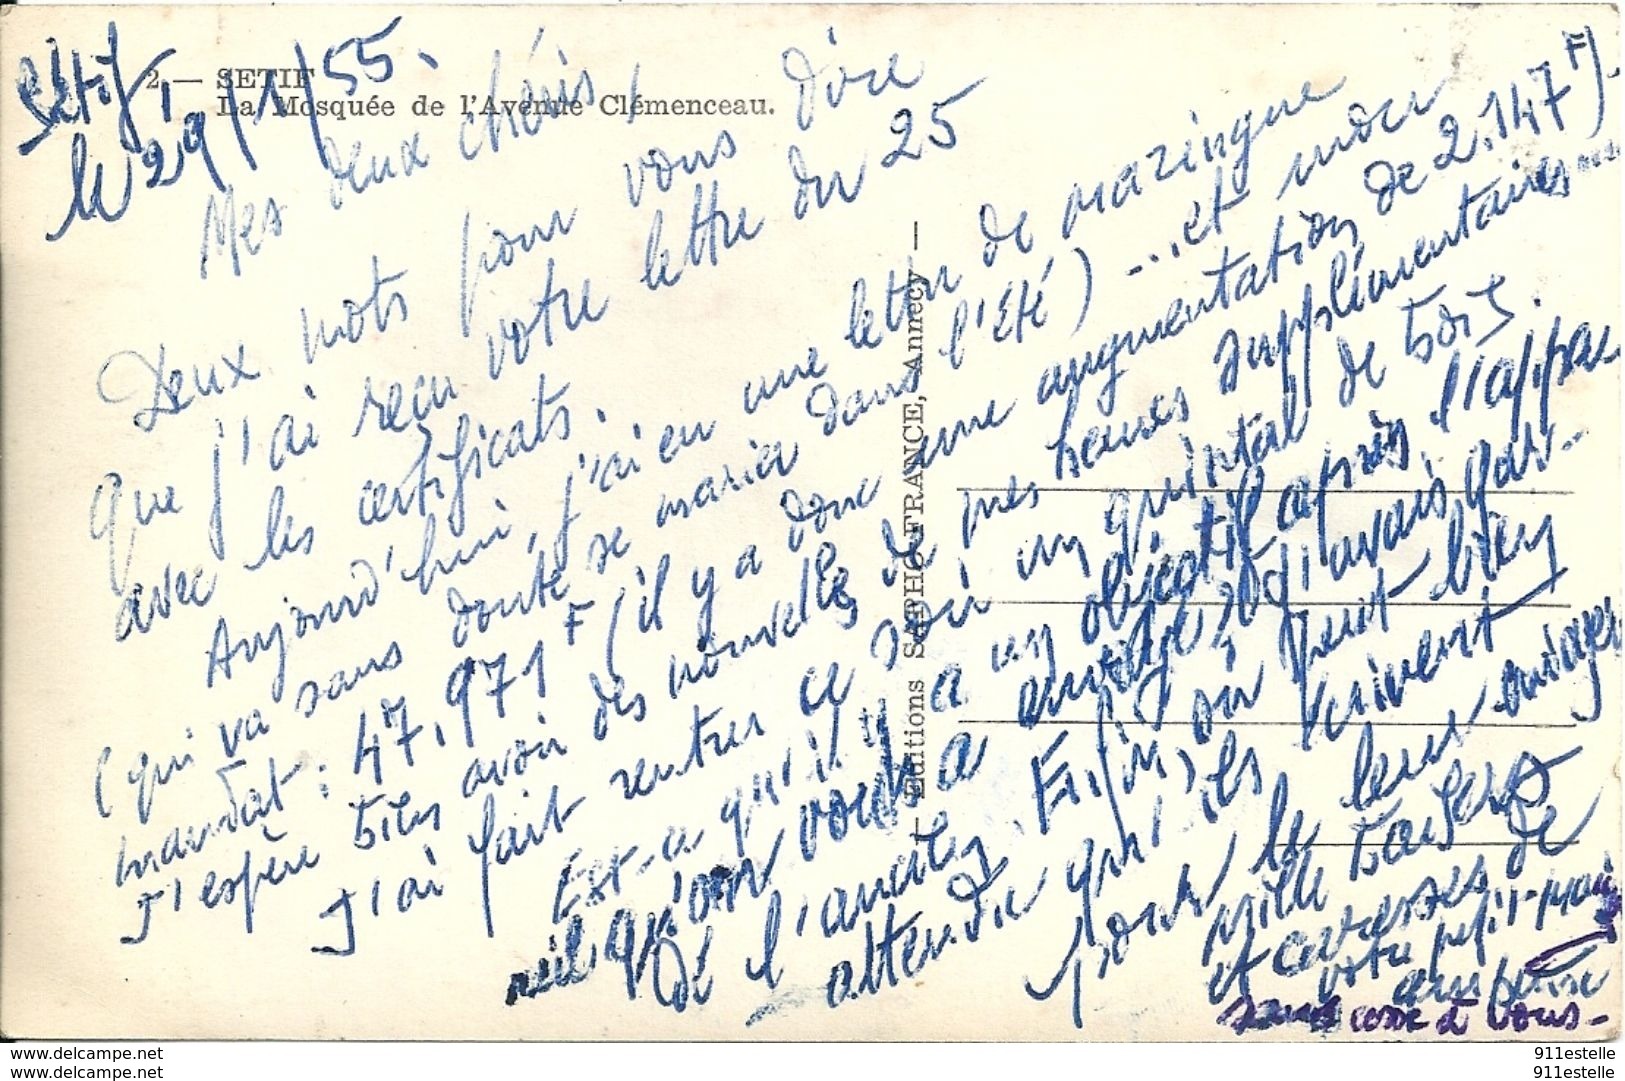 2. — SETIF
La Mosquée de l'Avenue Clémenceau.
Sétif,
le 29/1/55.
Mes deux chéris,
Deux mots pour vous dire
que j'ai reçu votre lettre du 25
avec les certificats.
Aujourd'hui, j'ai eu une lettre de maringue
(qui va sans doute se marier dans l'été) ...et mon
mandat : 47.971F (il y a donc une augmentation de 2.147F).
J'espère bien avoir des nouvelles de mes heures supplémentaires...
J'ai fait rentrer ce soir un quintal de bois.
Est-ce qu'il y a un objectif après l'appa-
reil qu'on vous a envoyé? J'avais
de l'ancien. Enfin, on peut bien
attendre qu'ils écrivent
pour le leur
mille baisers
et caresses de
votre petit
qui pense
sans cesse à vous-
— Editions SATHO-FRANCE, Annecy —
www.delcampe.net
www.delcampe.com
911estelle
911estelle